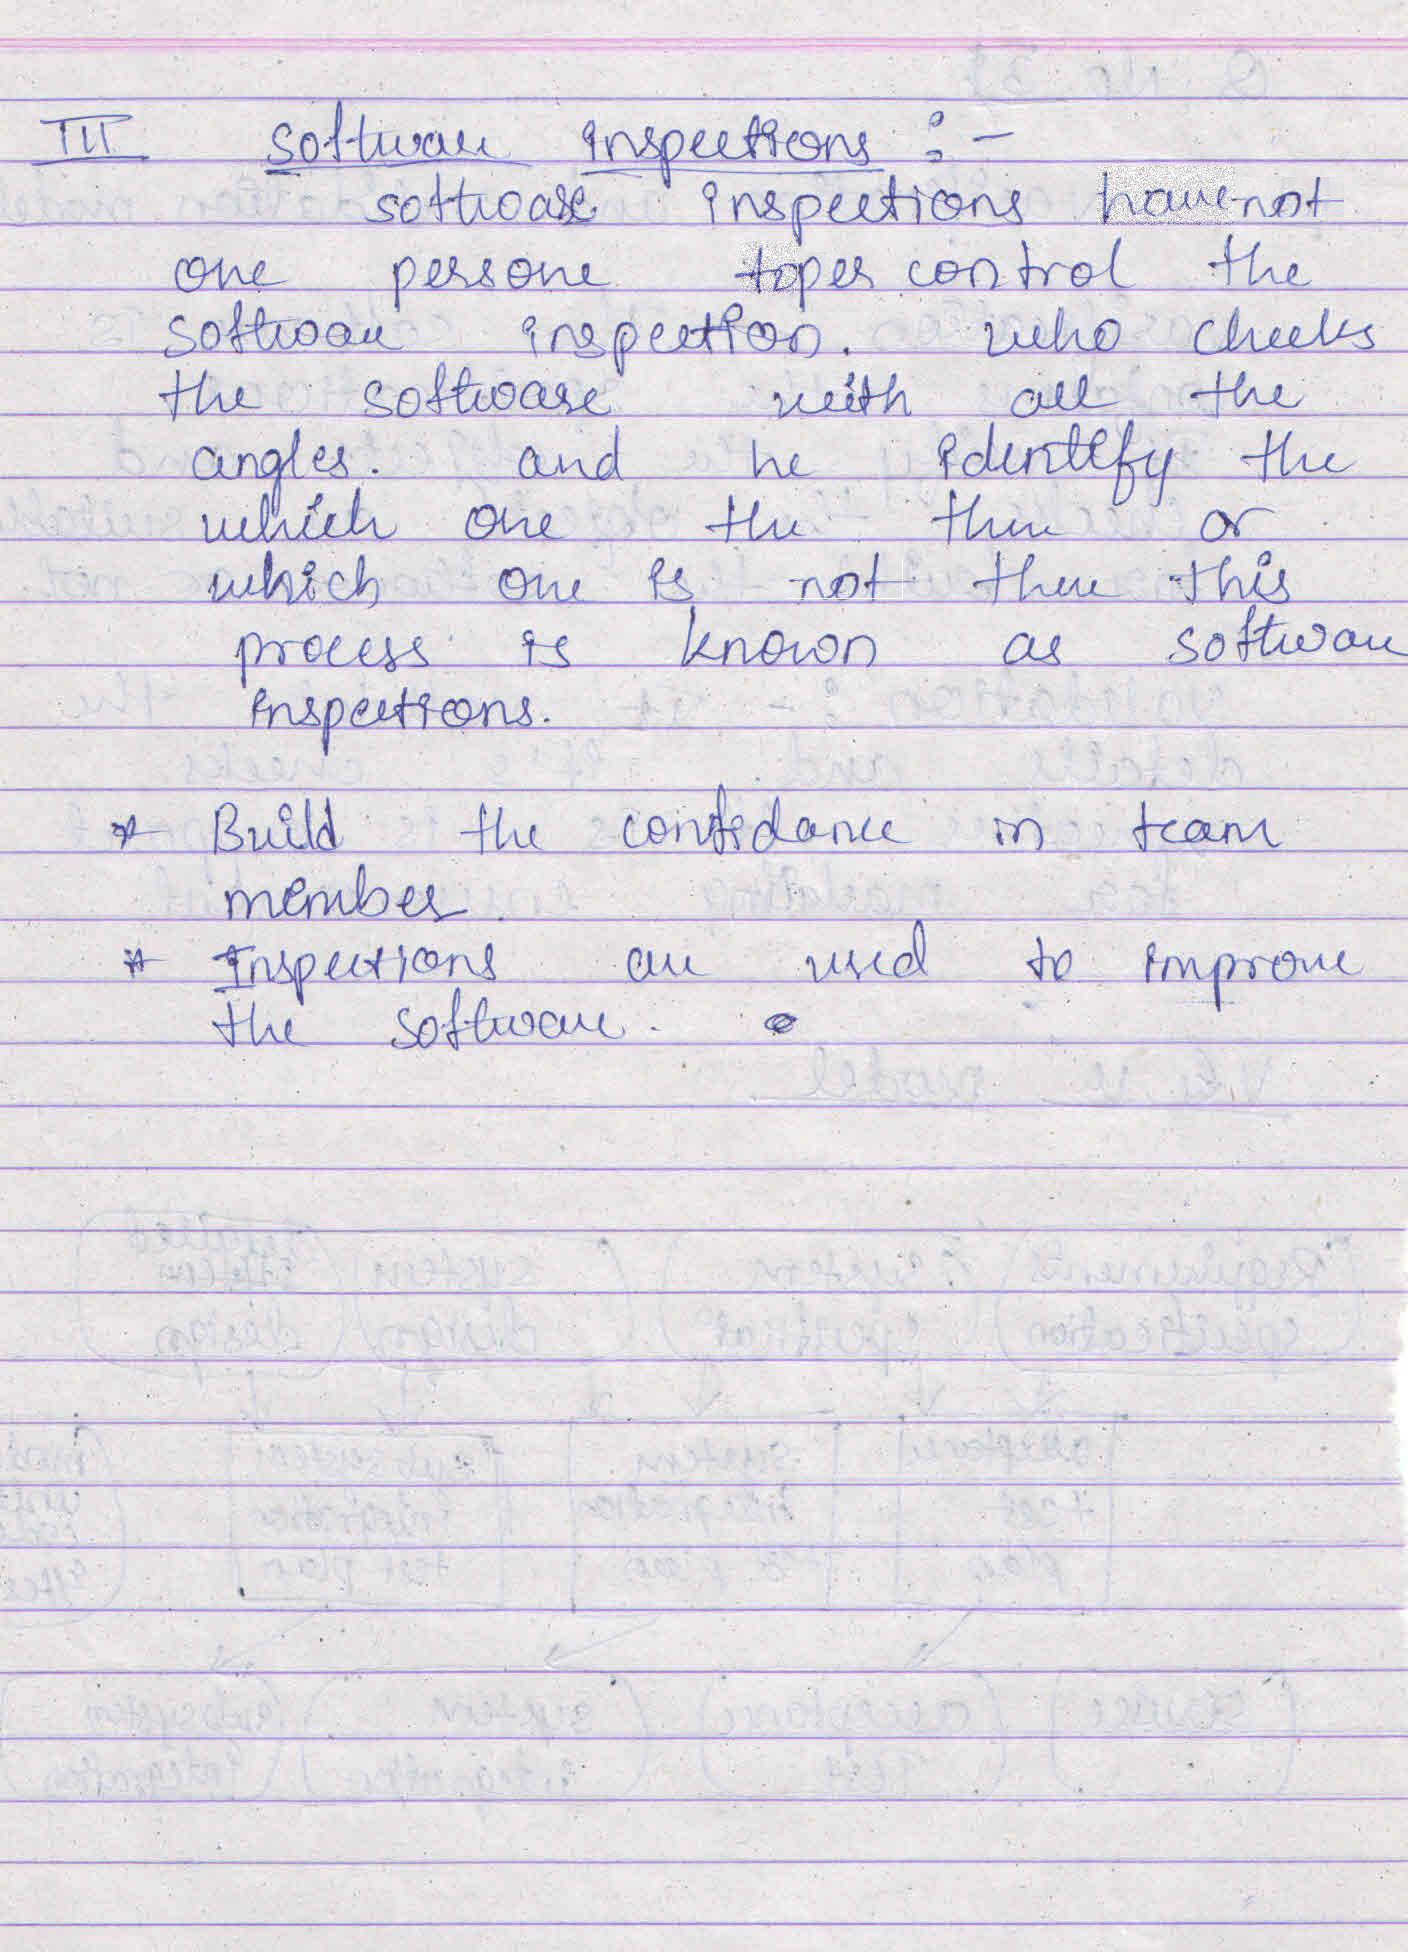 III Software inspections :-
software inspections have not
one persone topes control the
software inspection. who checks
the software with all the
angles. and he identify the
which one the there or
which one is not there this
process is known as software
inspections.
* Build the confidance in team
member.
* Inspections are used to improve
the software.